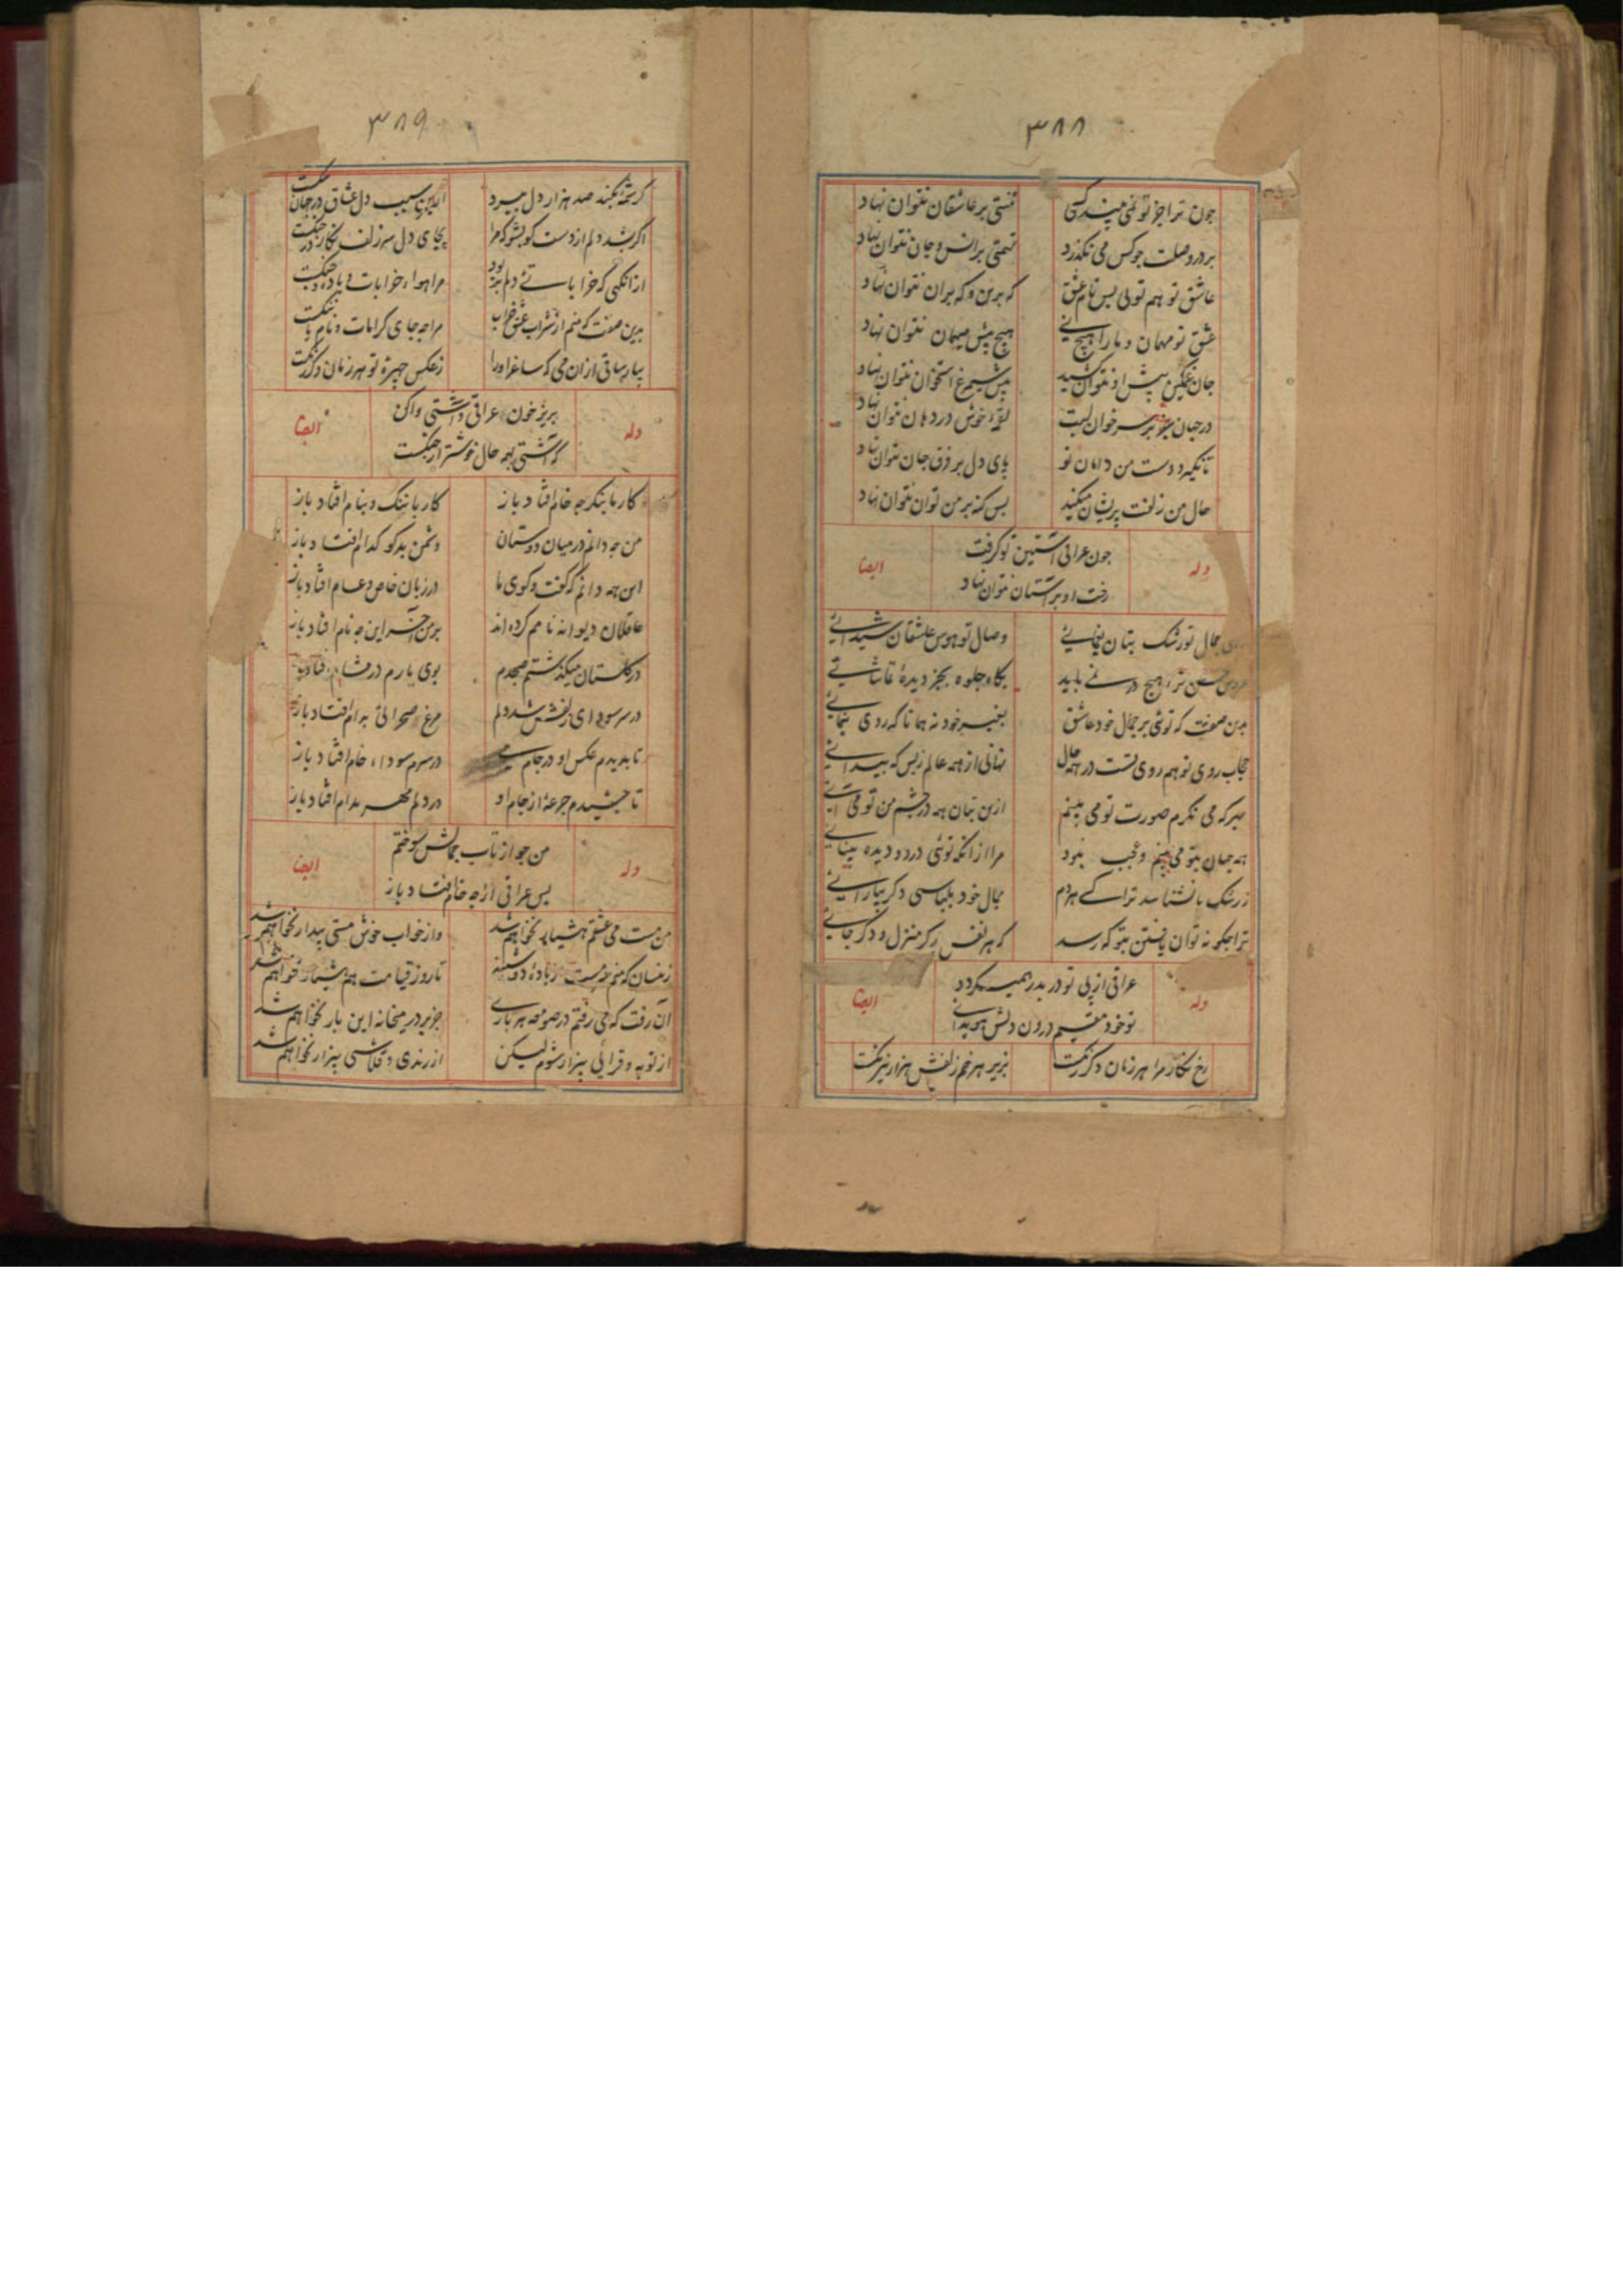 ۳۸۸
چون ترا جز تو نمی بیند کسی
تهمتی بر عاشقان نتوان نهاد
بر در وصلت چو کس می نگذرد
تهمتی بر انس و جان نتوان نهاد
عاشق تو هم تویی بس نام عشق
که برین و که بران نتوان نهاد
عشق تو مهمان و ما را هیچ نی
هیچ پیش میهمان نتوان نهاد
جان غمگین پیش او نتوان کشید
پیش سیمرغ استخوان نتوان نهاد
در جهان چو بر سر خوان لبت
لقمهٔ خوش در دهان نتوان نهاد
تا نگیرد دست من دامان تو
پای دل بر فرق جان نتوان نهاد
حال من زلفت پریشان میکند
بس گنه بر من توان نتوان نهاد
وله
چون عراقی آستین تو گرفت
رخت او بر آستان نتوان نهاد
ایضا
جمال تو رشک بتان یغمایی
وصال تو هوس عاشقان شیدایی
عروس حسن ترا هیچ در نمی باید
بگاه جلوه بجز دیدهٔ تماشایی
بدین صفت که تویی بر جمال خود عاشق
بغیر خود نه همانا که روی بنمایی
حجاب روی تو هم روی تست در همه حال
نهانی از همه عالم ز بس که پیدایی
بهر که می نگرم صورت تو می بینم
ازین بتان همه در چشم من تو می آیی
همه جهان بتو می بینم و عجب نبود
مرا ازانکه تویی در دو دیده بینایی
ز رشک تا نشناسد ترا کسی هر دم
جمال خود بلباسی دگر بیارایی
ترا چگونه توان یافتن بتو که رسد
که هر نفس دگر منزل و دگر جایی
وله
عراقی از پی تو در بدر همی گردد
تو خود مقیم درون دلش هویدایی
ایضا
رخ نگار مرا هر زمان دگر رنگست
بزیر هر خم زلفش هزار نیرنگست
۳۸۹
کرشمهٔ بکند صد هزار دل ببرد
ازین سبب دل عشاق در جهان تنگست
اگر بشد دلم از دست گو بشو که مرا
بجای دل سر زلف نگار در چنگست
از انگهی که خراباتی دلم بربود
مرا هواء خرابات و باده و چنگست
بدین صفت که منم از شراب عشق خراب
مرا چه جای کرامات و نام یا ننگست
بیار ساقی ازان می که ساغر او را
ز عکس چهرهٔ تو هر زمان دگر رنگست
وله
بریز خون عراقی و آشتی وا کن
که آشتی بهمه حال خوشتر از جنگست
ایضا
کار ما بنگر چه خام افتاد باز
کار با ننگ و بنام افتاد باز
من چه دانم در میان دوستان
دشمن بدگو کدام افتاد باز
این همه دانم که گفت و گوی ما
در زبان خاص و عام افتاد باز
عاقلان دیوانه نامم کرده اند
بر من آخر این چه نام افتاد باز
در گلستان میگذشتم صبحدم
بوی یارم در مشام افتاد باز
در سر سودای زلفش شد دلم
مرغ صحرائی بدام افتاد باز
تا بدیدم عکس او در جام می
در سرم سوداء خام افتاد باز
تا چشیدم جرعهٔ از جام او
در دلم مهر مدام افتاد باز
وله
من چو از تاب جمالش سوختم
پس عراقی از چه خام افتاد باز
ایضا
من مست می عشقم هشیار نخواهم شد
وز خواب خوش مستی بیدار نخواهم شد
زینسان که منم مست ز بادهٔ دوشینه
تا روز قیامت هم هشیار نخواهم شد
آن رفت که می رفتم در صومعه هر باری
جز بر در میخانه این بار نخواهم شد
از توبه و قرائی بیزار شوم لیکن
از رندی و قلاشی بیزار نخواهم شد